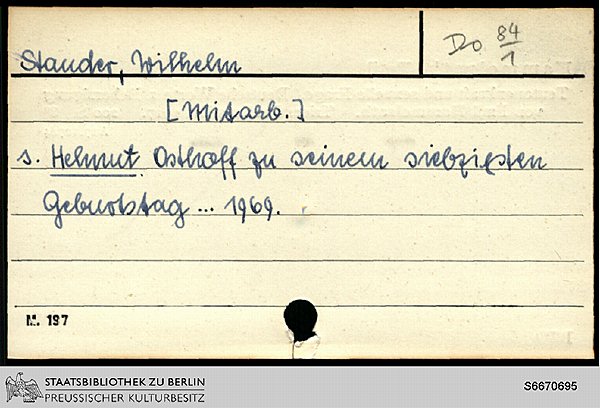 Stauder, Wilhelm
Do 84/1
[Mitarb.]
s. Helmut Osthoff zu seinem siebzigsten
Geburtstag ... 1969.
M. 197
STAATSBIBLIOTHEK ZU BERLIN
PREUSSISCHER KULTURBESITZ
S6670695